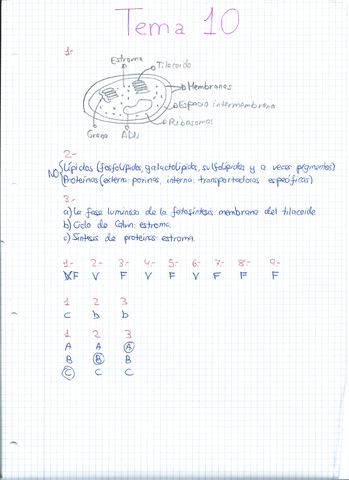 Tema 10
1-
Estroma
Tilacoide
Membranas
Espacio intermembrana
Ribosomas
Grana
ADN
2-
NO Lípidos (fosfolípidos, galactolípidos, sulfolípidos y a veces pigmentos)
Proteínas (externa: porinas, interna: transportadoras específicas)
3-
a) La fase luminosa de la fotosíntesis: membrana del tilacoide
b) Ciclo de Calvin: estroma.
c) Síntesis de proteínas: estroma.
1- 2- 3- 4- 5- 6- 7- 8- 9-
F V F V F V F F F
1 2 3
c b b
1 2 3
A A A
B B B
C C C